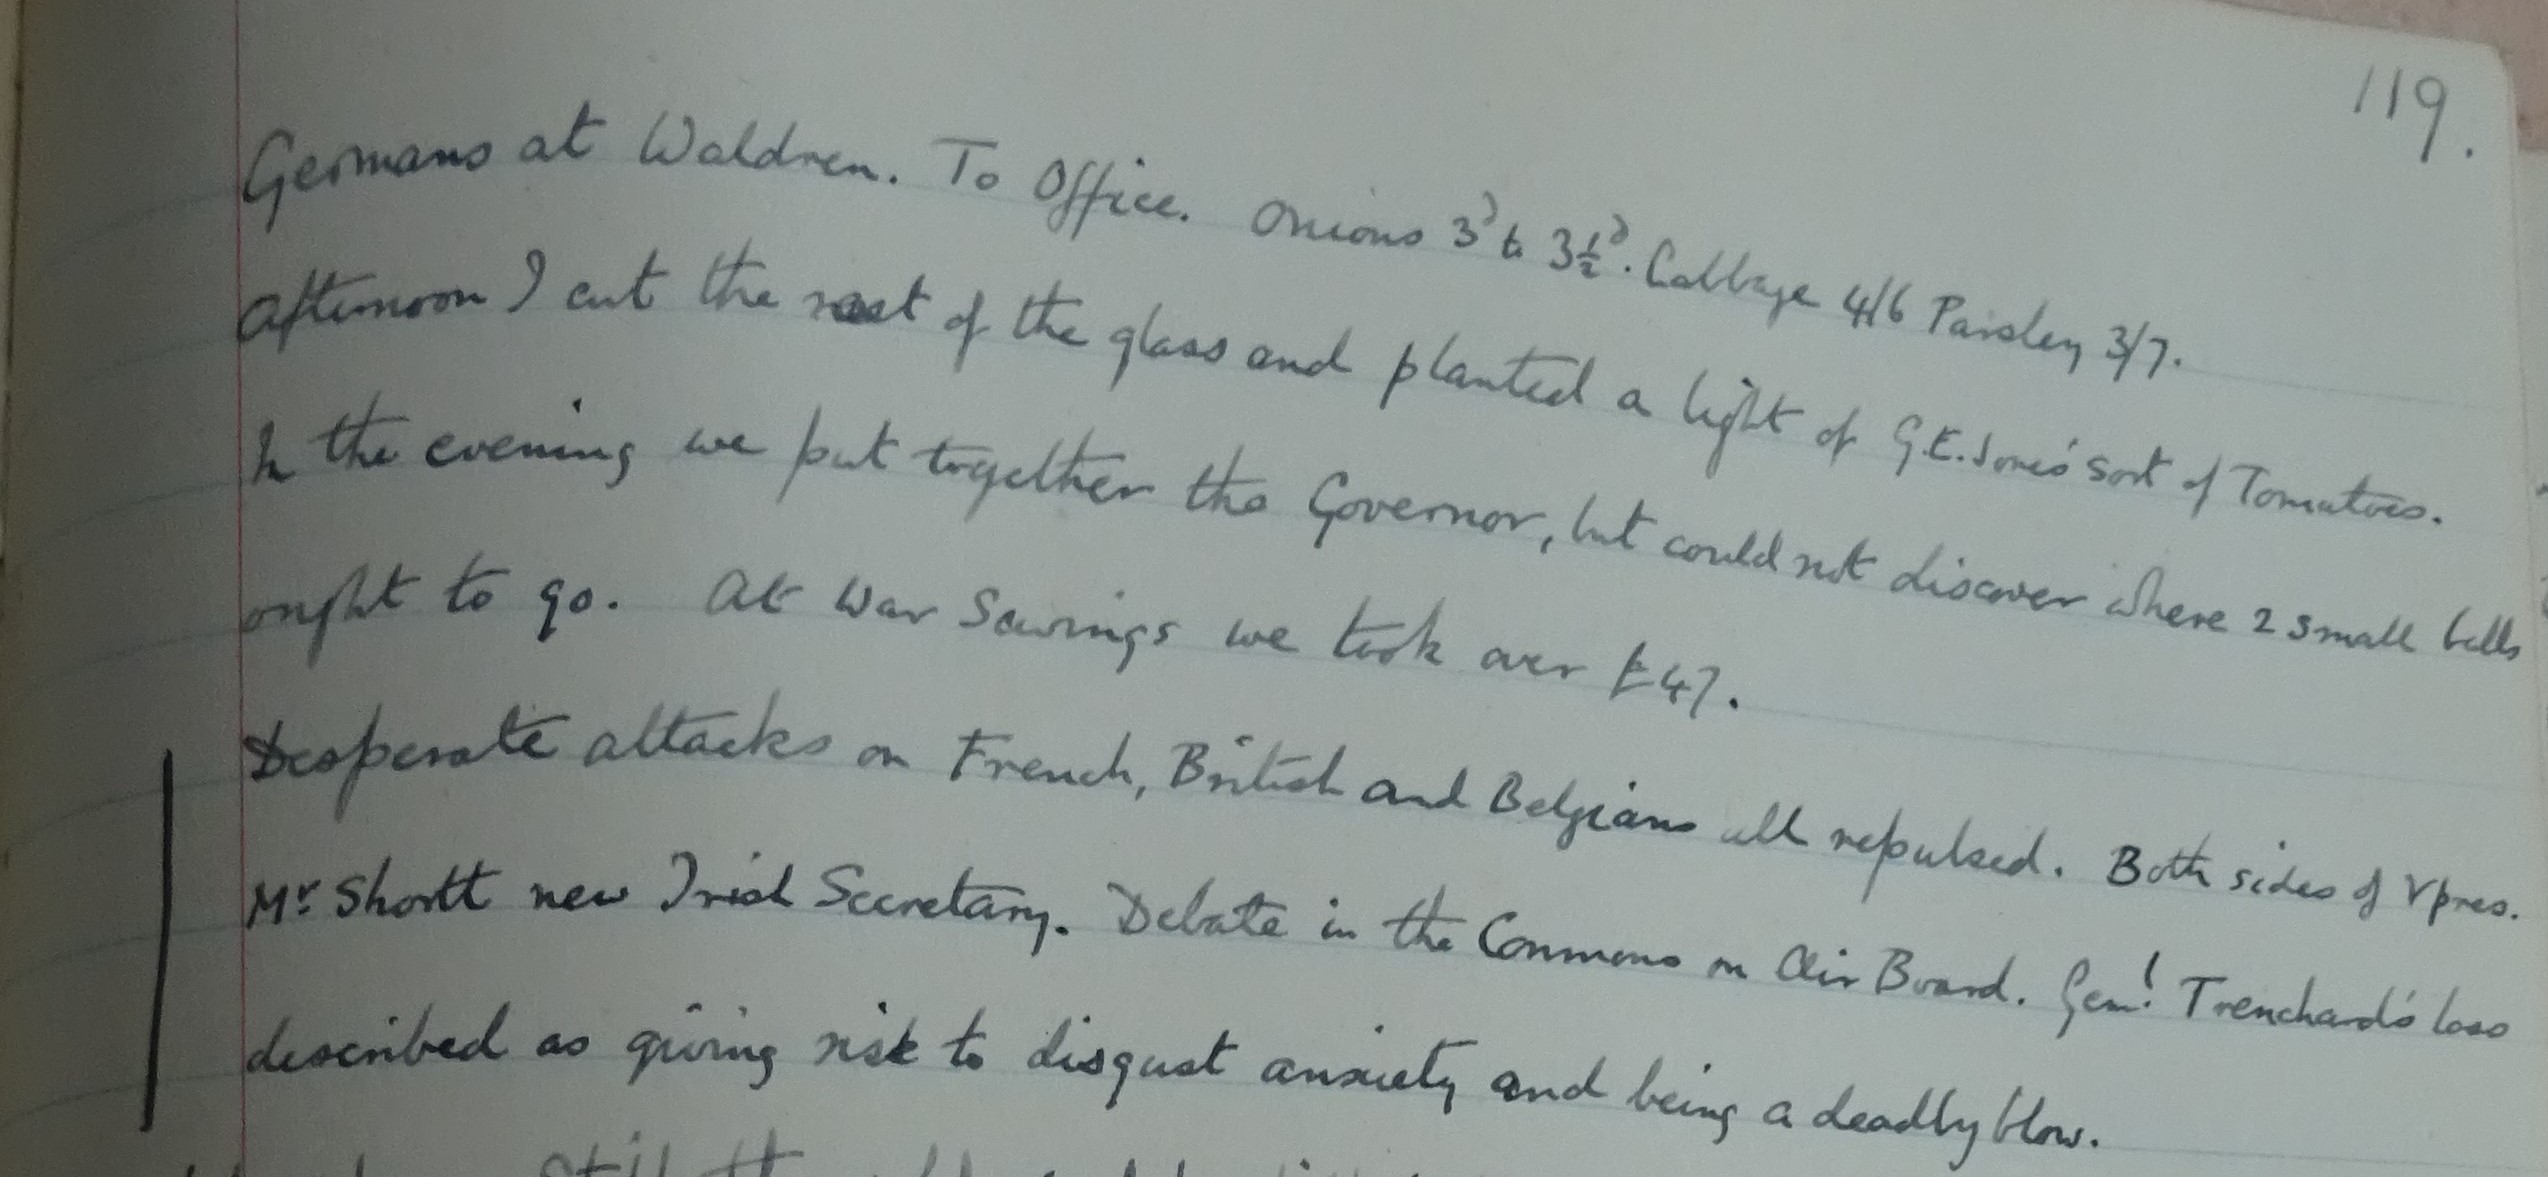 119.
Germans at Waldren. To Office. Onions 3d to 3½d. Cabbage 4/6 Parsley 3/7.
afternoon I cut the rest of the glass and planted a light of G.E. Jones' sort of Tomatoes.
In the evening we put together the Governor, but could not discover where 2 small balls
ought to go. At War Savings we took over £47.
Desperate attacks on French, British and Belgians all repulsed. Both sides of Ypres.
Mr Shortt new Irish Secretary. Debate in the Commons on Air Board. Genl Trenchard's loss
described as giving rise to disgust anxiety and being a deadly blow.